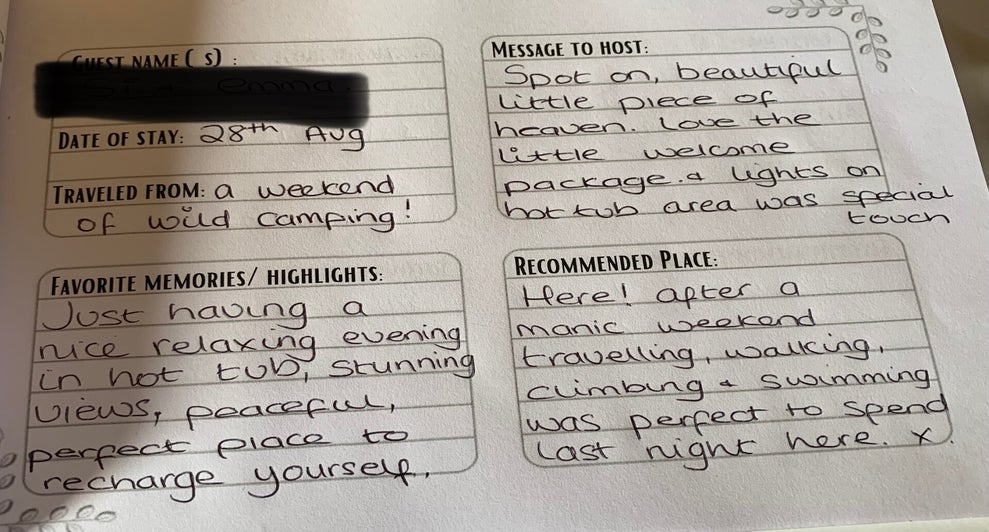 GUEST NAME( S) :
DATE OF STAY: 28th Aug
TRAVELED FROM: a weekend
of wild camping!
FAVORITE MEMORIES/ HIGHLIGHTS:
Just having a
nice relaxing evening
in hot tub, stunning
views, peaceful,
perfect place to
recharge yourself.
MESSAGE TO HOST:
Spot on, beautiful
little piece of
heaven. Love the
little welcome
package. & lights on
hot tub area was special
touch
RECOMMENDED PLACE:
Here! after a
manic weekend
travelling, walking,
climbing & swimming
was perfect to spend
last night here. x.